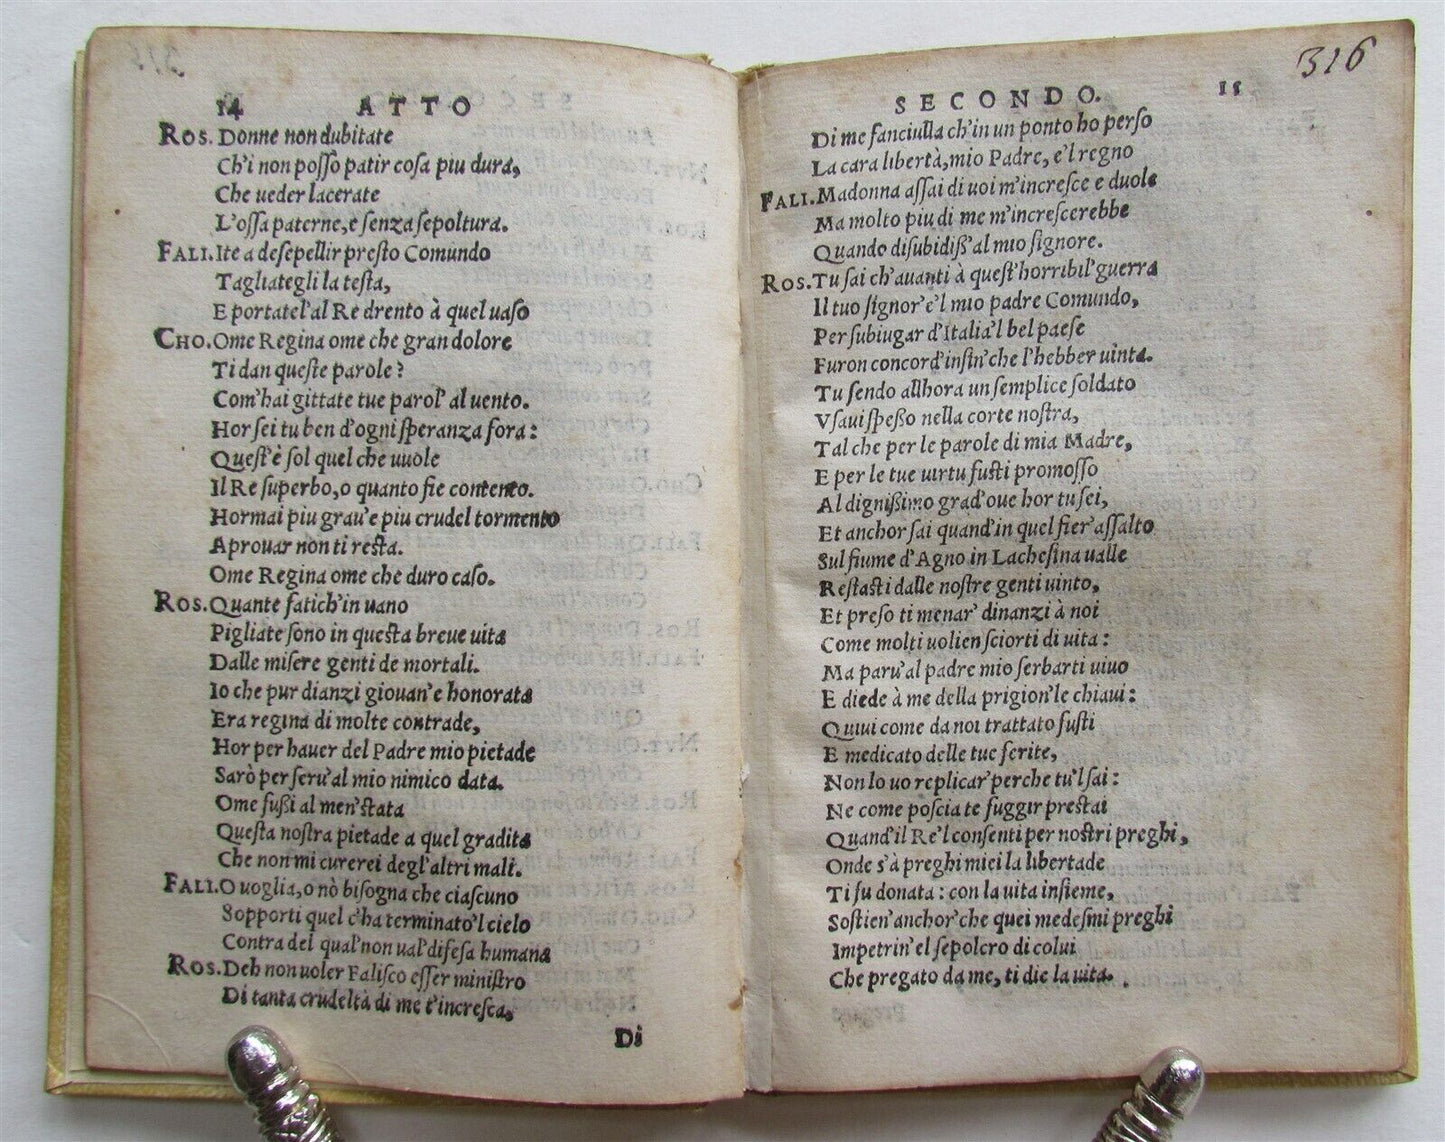 14 ATTO
ROS. Donne non dubitate
Ch'i non posso patir cosa piu dura,
Che ueder lacerate
L'ossa paterne, e senza sepoltura.
FALI. Ite a desepellir presto Comundo
Tagliategli la testa,
E portatel'al Re drento à quel uaso
CHO. Ome Regina ome che gran dolore
Ti dan queste parole?
Com'hai gittate tue parol' al uento.
Hor sei tu ben d'ogni speranza fora:
Quest'è sol quel che uuole
Il Re superbo, o quanto fie contento.
Hormai piu grau'e piu crudel tormento
Aprouar non ti resta.
Ome Regina ome che duro caso.
ROS. Quante fatich'in uano
Pigliate sono in questa breue uita
Dalle misere genti de mortali.
Io che pur dianzi giouan'e honorata
Era regina di molte contrade,
Hor per hauer del Padre mio pietade
Sarò per seru'al mio nimico data.
Ome fußi al men'stata
Questa nostra pietade a quel gradita
Che non mi curerei degl'altri mali.
FALI. O uoglia, o nò bisogna che ciascuno
Sopporti quel c'ha terminato'l cielo
Contra del qual'non ual'difesa humana
ROS. Deh non uoler Falisco esser ministro
Di tanta crudeltà di me t'incresca,
Di
316
SECONDO. 15
Di me fanciulla ch'in un ponto ho perso
La cara libertà, mio Padre, e'l regno
FALI. Madonna assai di uoi m'incresce e duole
Ma molto piu di me m'increscerebbe
Quando disubidiß'al mio signore.
ROS. Tu sai ch'auanti à quest'horribil'guerra
Il tuo signor'e'l mio padre Comundo,
Per subiugar d'Italia'l bel paese
Furon concord'insin'che l'hebber uinta.
Tu sendo allhora un semplice soldato
Vsaui speßo nella corte nostra,
Tal che per le parole di mia Madre,
E per le tue uirtu fusti promosso
Al dignißimo grad'oue hor tu sei,
Et anchor sai quand'in quel fier'assalto
Sul fiume d'Agno in Lachesina ualle
Restasti dalle nostre genti uinto,
Et preso ti menar' dinanzi à noi
Come molti uolien sciorti di uita:
Ma paru'al padre mio serbarti uiuo
E diede à me della prigion'le chiaui:
Quiui come da noi trattato fusti
E medicato delle tue ferite,
Non lo uo replicar'perche tu'l sai:
Ne come poscia te fuggir prestai
Quand'il Re'l consenti per nostri preghi,
Onde s'à preghi miei la libertade
Ti fu donata: con la uita insieme,
Sostien'anchor'che quei medesmi preghi
Impetrin'el sepolcro di colui
Che pregato da me, ti die la uita.